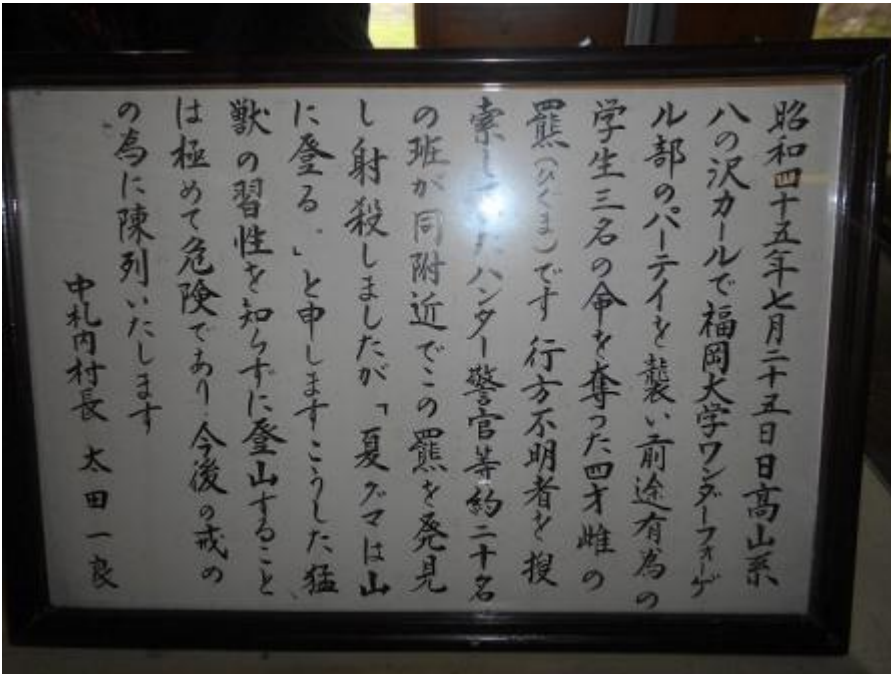 昭和四十五年七月二十五日日高山系
八の沢カールで福岡大学ワンダーフォーゲ
ル部のパーテイを襲い前途有為の
学生三名の命を奪った四才雌の
羆(ひぐま)です 行方不明者を捜
索していたハンター警官等約二十名
の班が同附近でこの羆を発見
し射殺しましたが「夏グマは山
に登る。」と申しますこうした猛
獣の習性を知らずに登山すること
は極めて危険であり、今後の戒の
の為に陳列いたします
中札内村長 太田一良